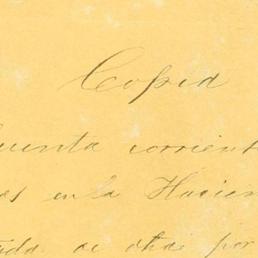 Copia
cuenta corrient
es en la Hacien
de otras por